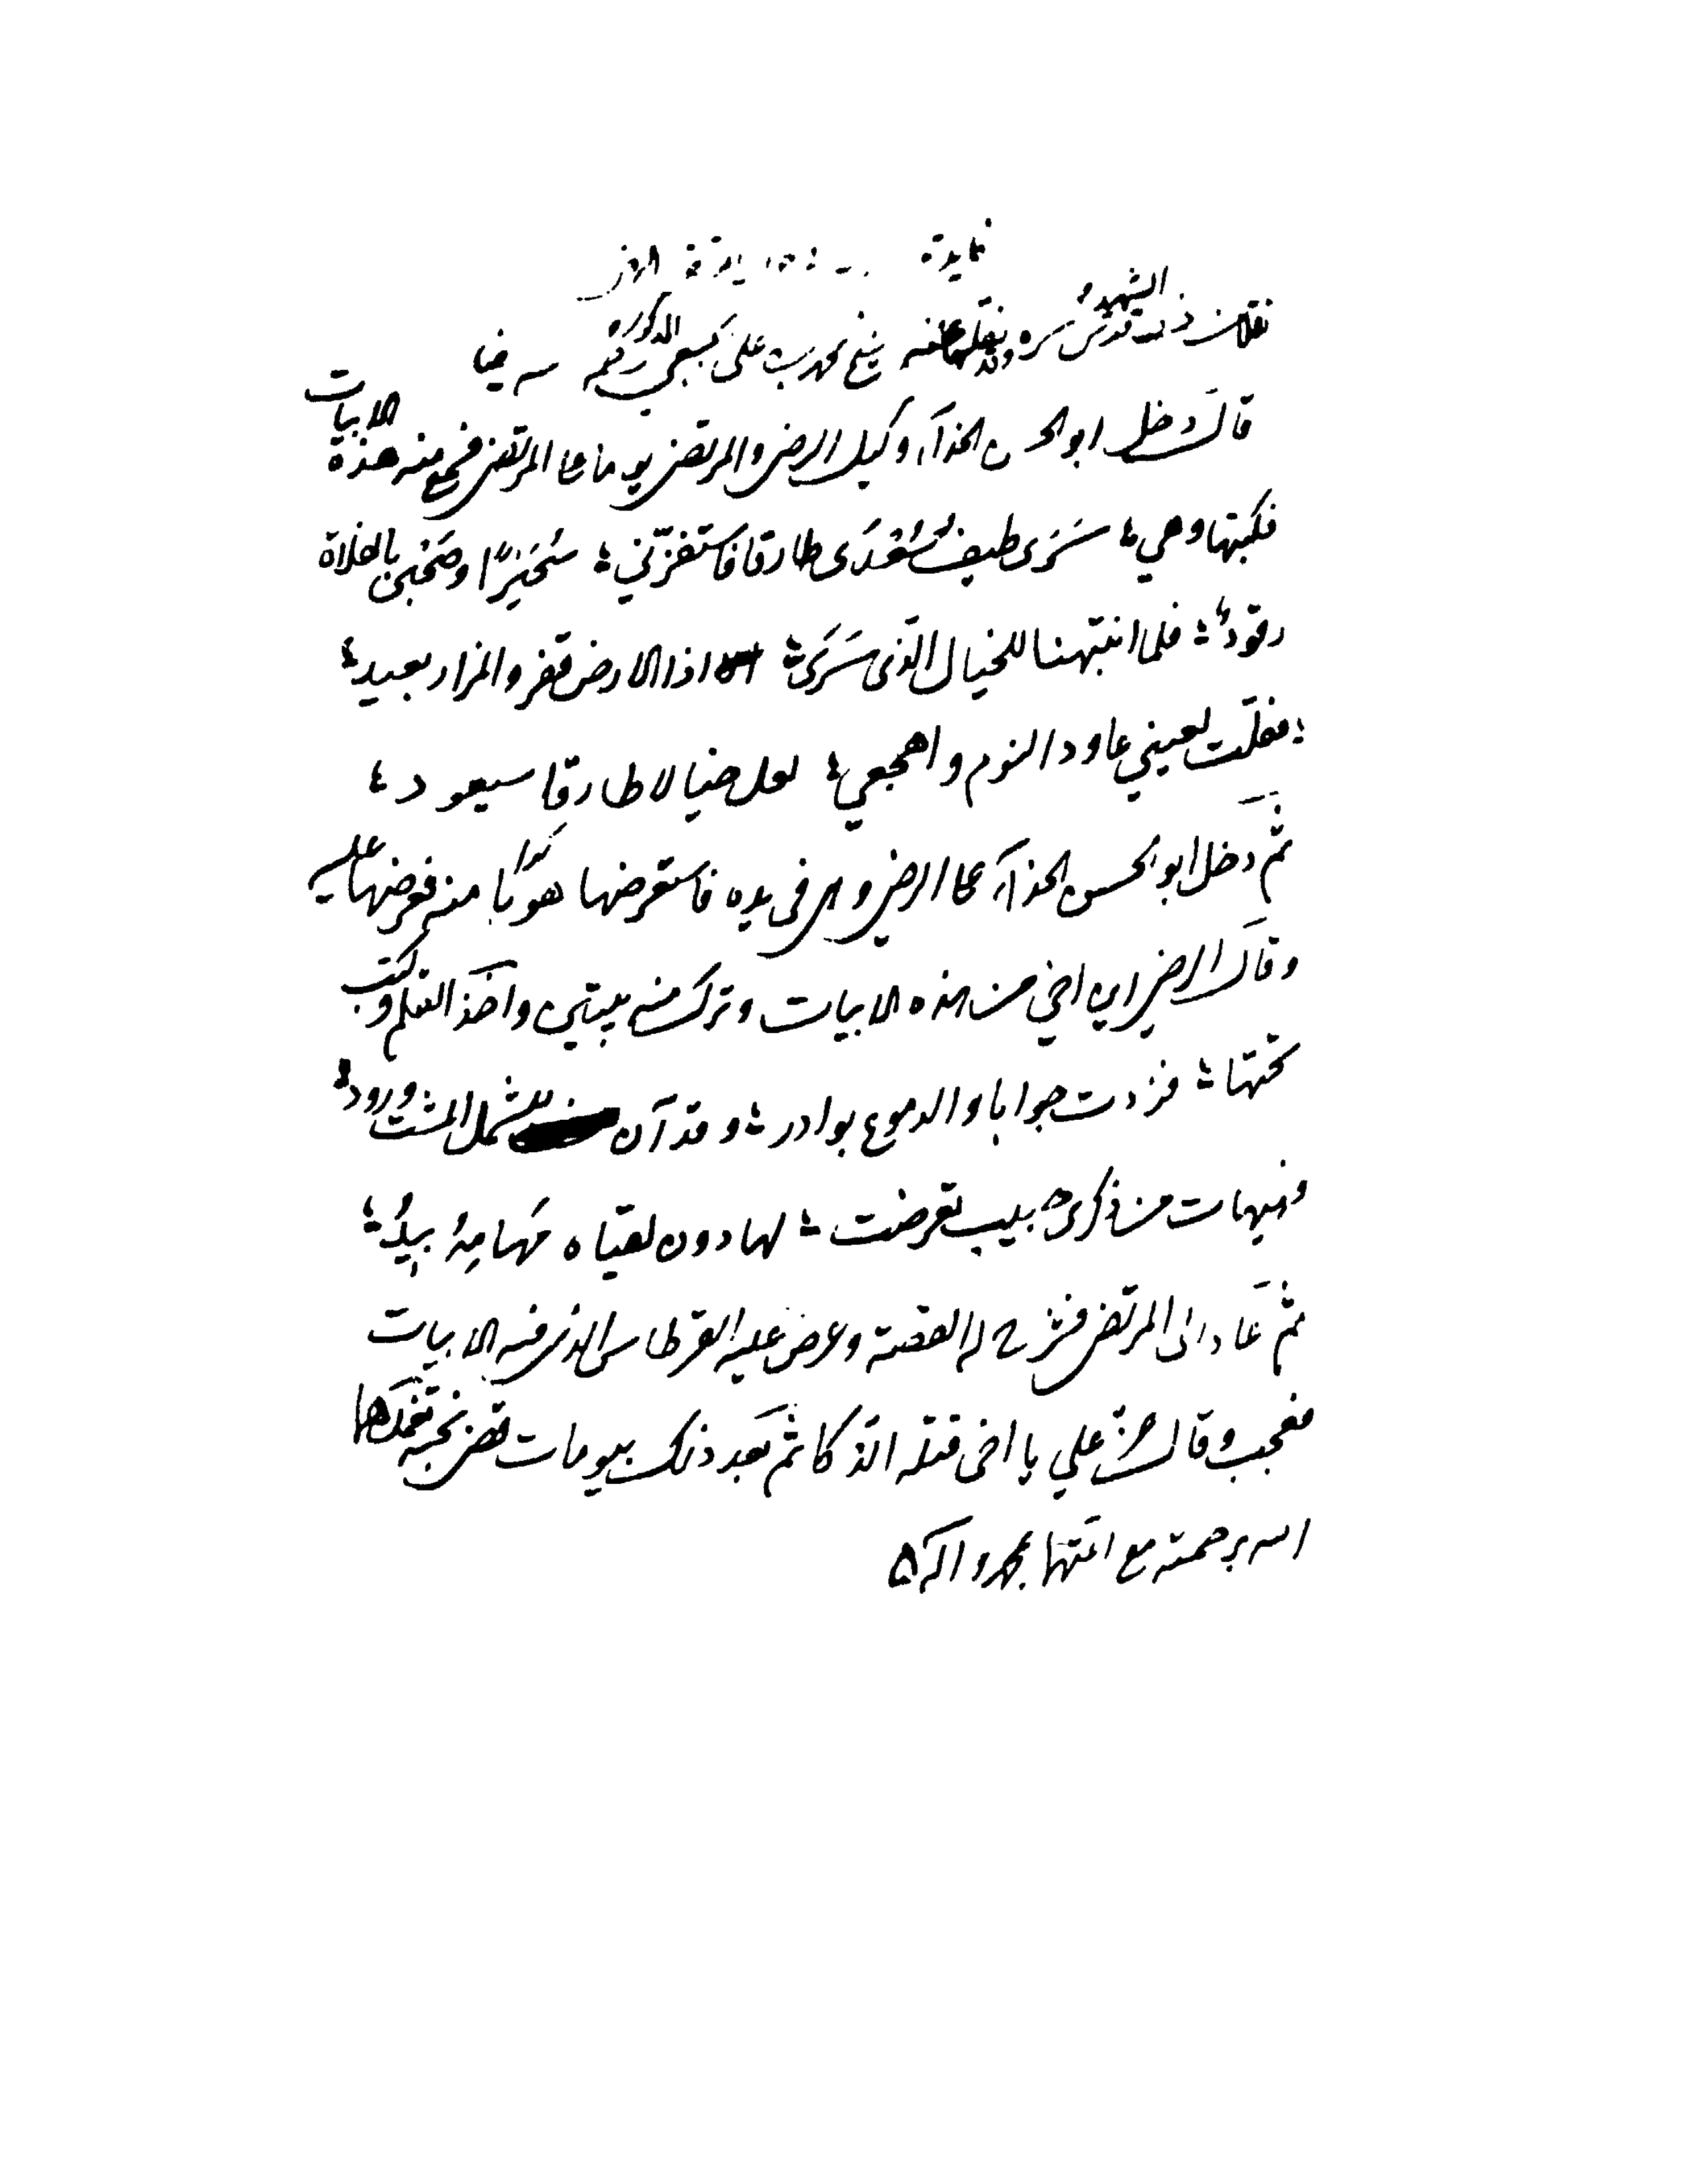 فايدة
الشهيد
قدس سره
قال دخل ابو الحسن الحذآء وكيل الرضي والمرتضى يوما على المرتضى فسمع منه هذه الابيات
فكتبها وهي ؛ سَرَى طيفُ سُعْدَى طارقا فاستفزّني ؛ سُحَيْرًا وصَحْبي بالفلاة
رقودُ ؛ فلما انتبهنا للخيال الذي سَرَى ؛ اذا الارض قفر والمزار بعيد ؛
؛ فقلت لعيني عاود النوم واهجعي ؛ لعل خيالا طارقا سيعود ؛
ثم دخل ابو الحسن الحذآء على الرضي وهي في يده فاستعرضها هو منه فعرضها عليه
وقال الرضي اين اخي من هذه الابيات وترك منه بيتين واخذ القلم وكتب
تحتها ؛ فزدت جوابا والدموع بوادر ؛ وقد آن للشمل المشت ورود ؛
وهيهات من ذكرى حبيب تعرضت ؛ لها دون لقياه مَهامِهُ بيدُ ؛
ثم عَاد الى المرتضى فشرح له القصة وعرض عليه القرطاس الذي فيه الابيات
فعجب وقال عزّ علي يا اخي قتله الذكا ثم بَعد ذلك بيومات قضى نحبه تغمدهما
الله برحمته مع ائمتهما بمحمد واله ۵